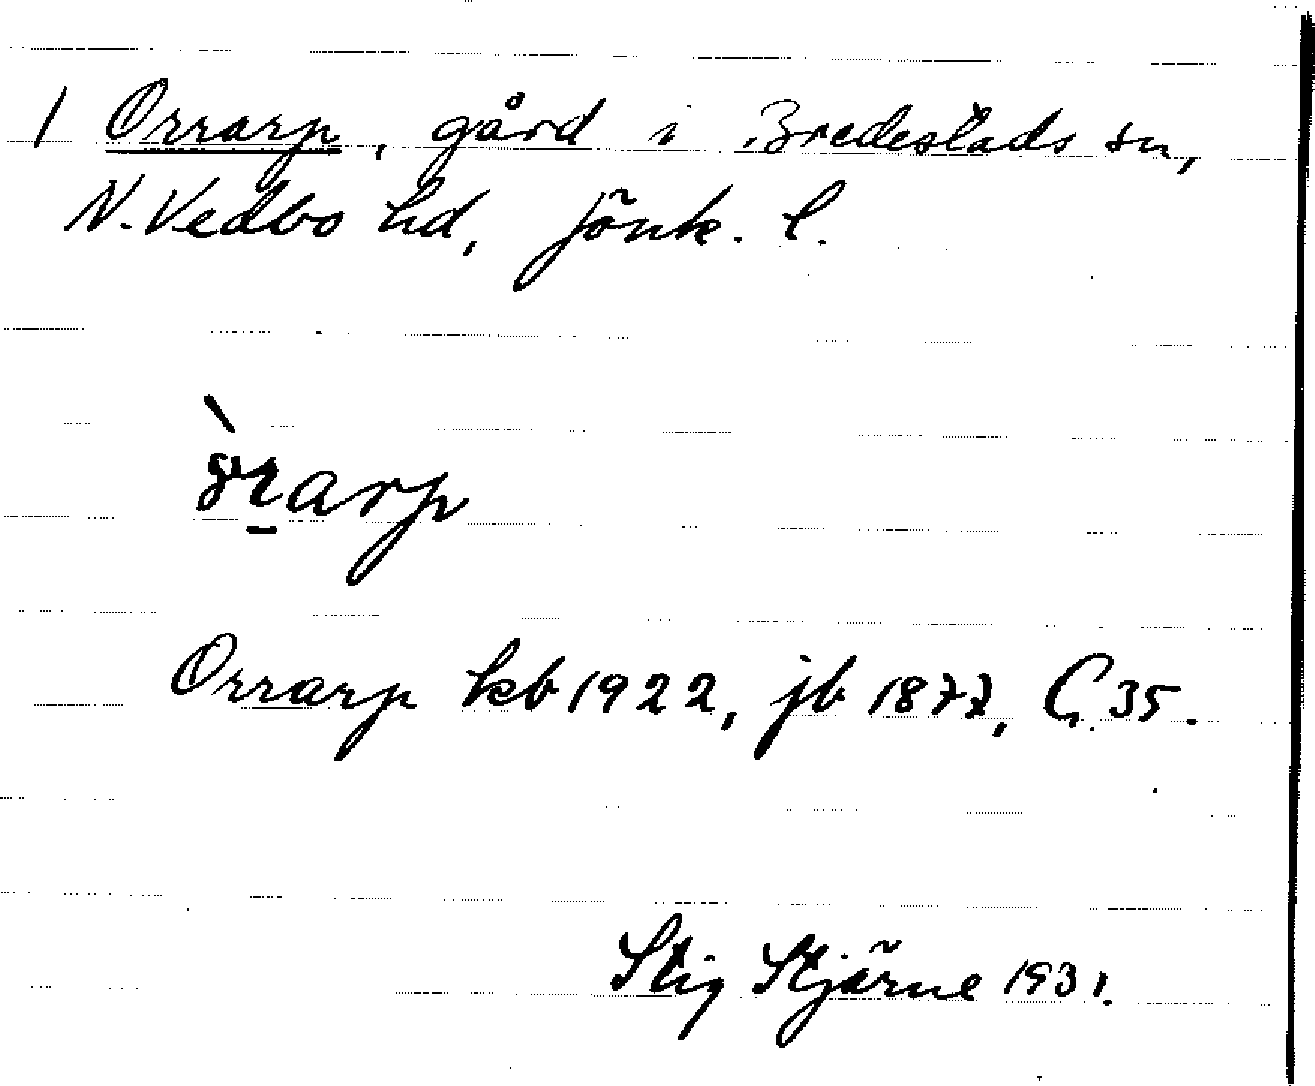 1 Orrarp, gård i Bredestads sn,
N. Vedbo hd, Jönk. l.
Orrarp kb 1922, jb 1877, G. 35.
Stig Stjärne 1931.